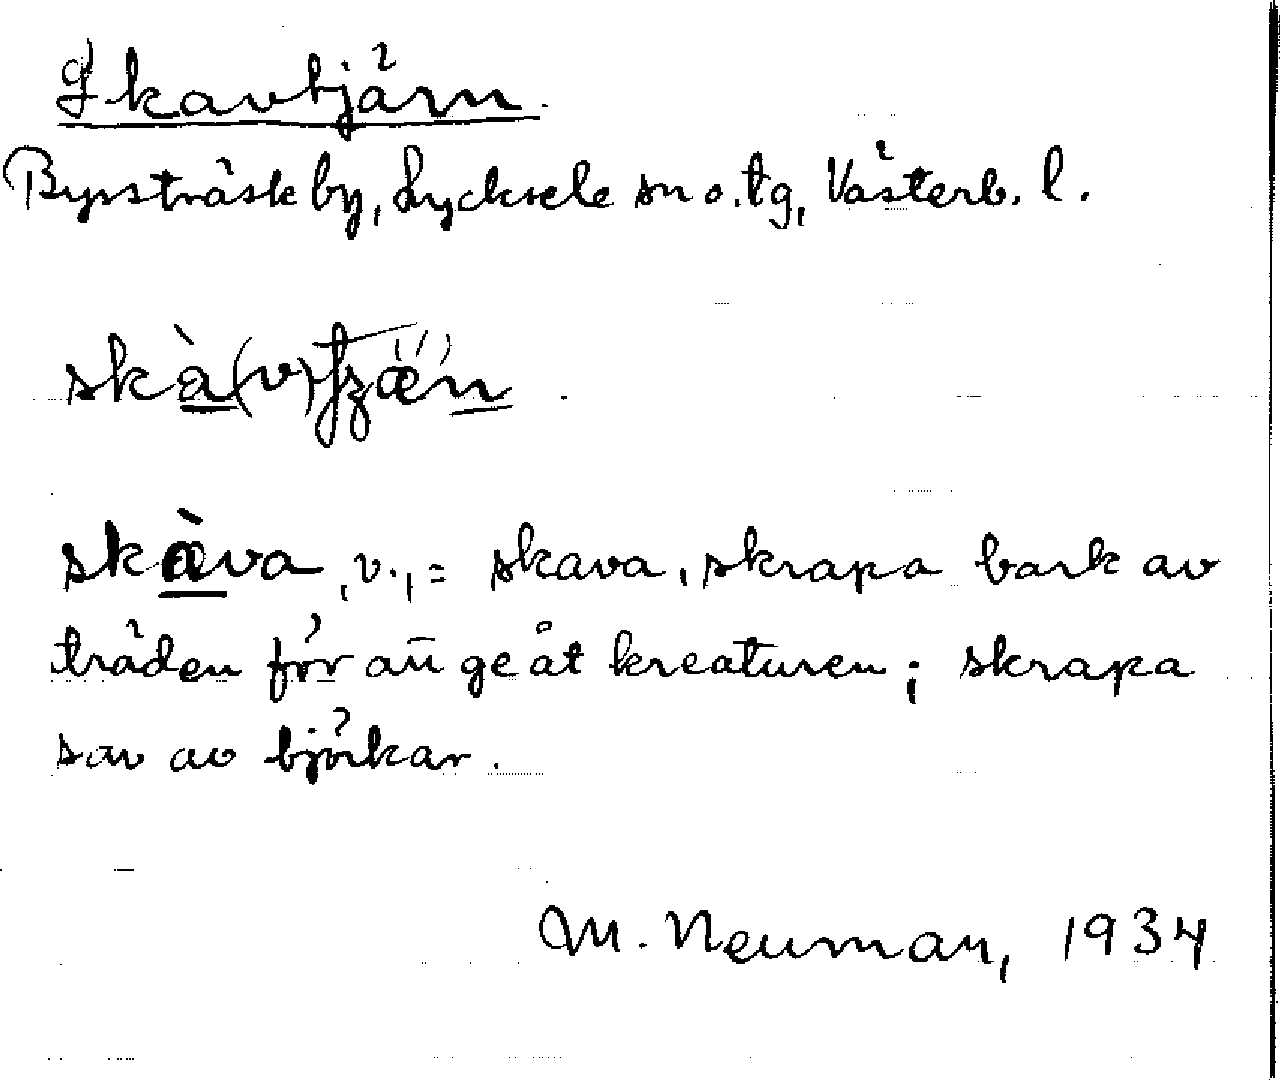 Skavtjärn.
Bysträsk by, Lycksele sn o. tg, Västerb. l.
skàva, v., = skava, skrapa bark av
träden för att ge åt kreaturen; skrapa
sav av björkar.
M. Neuman, 1934